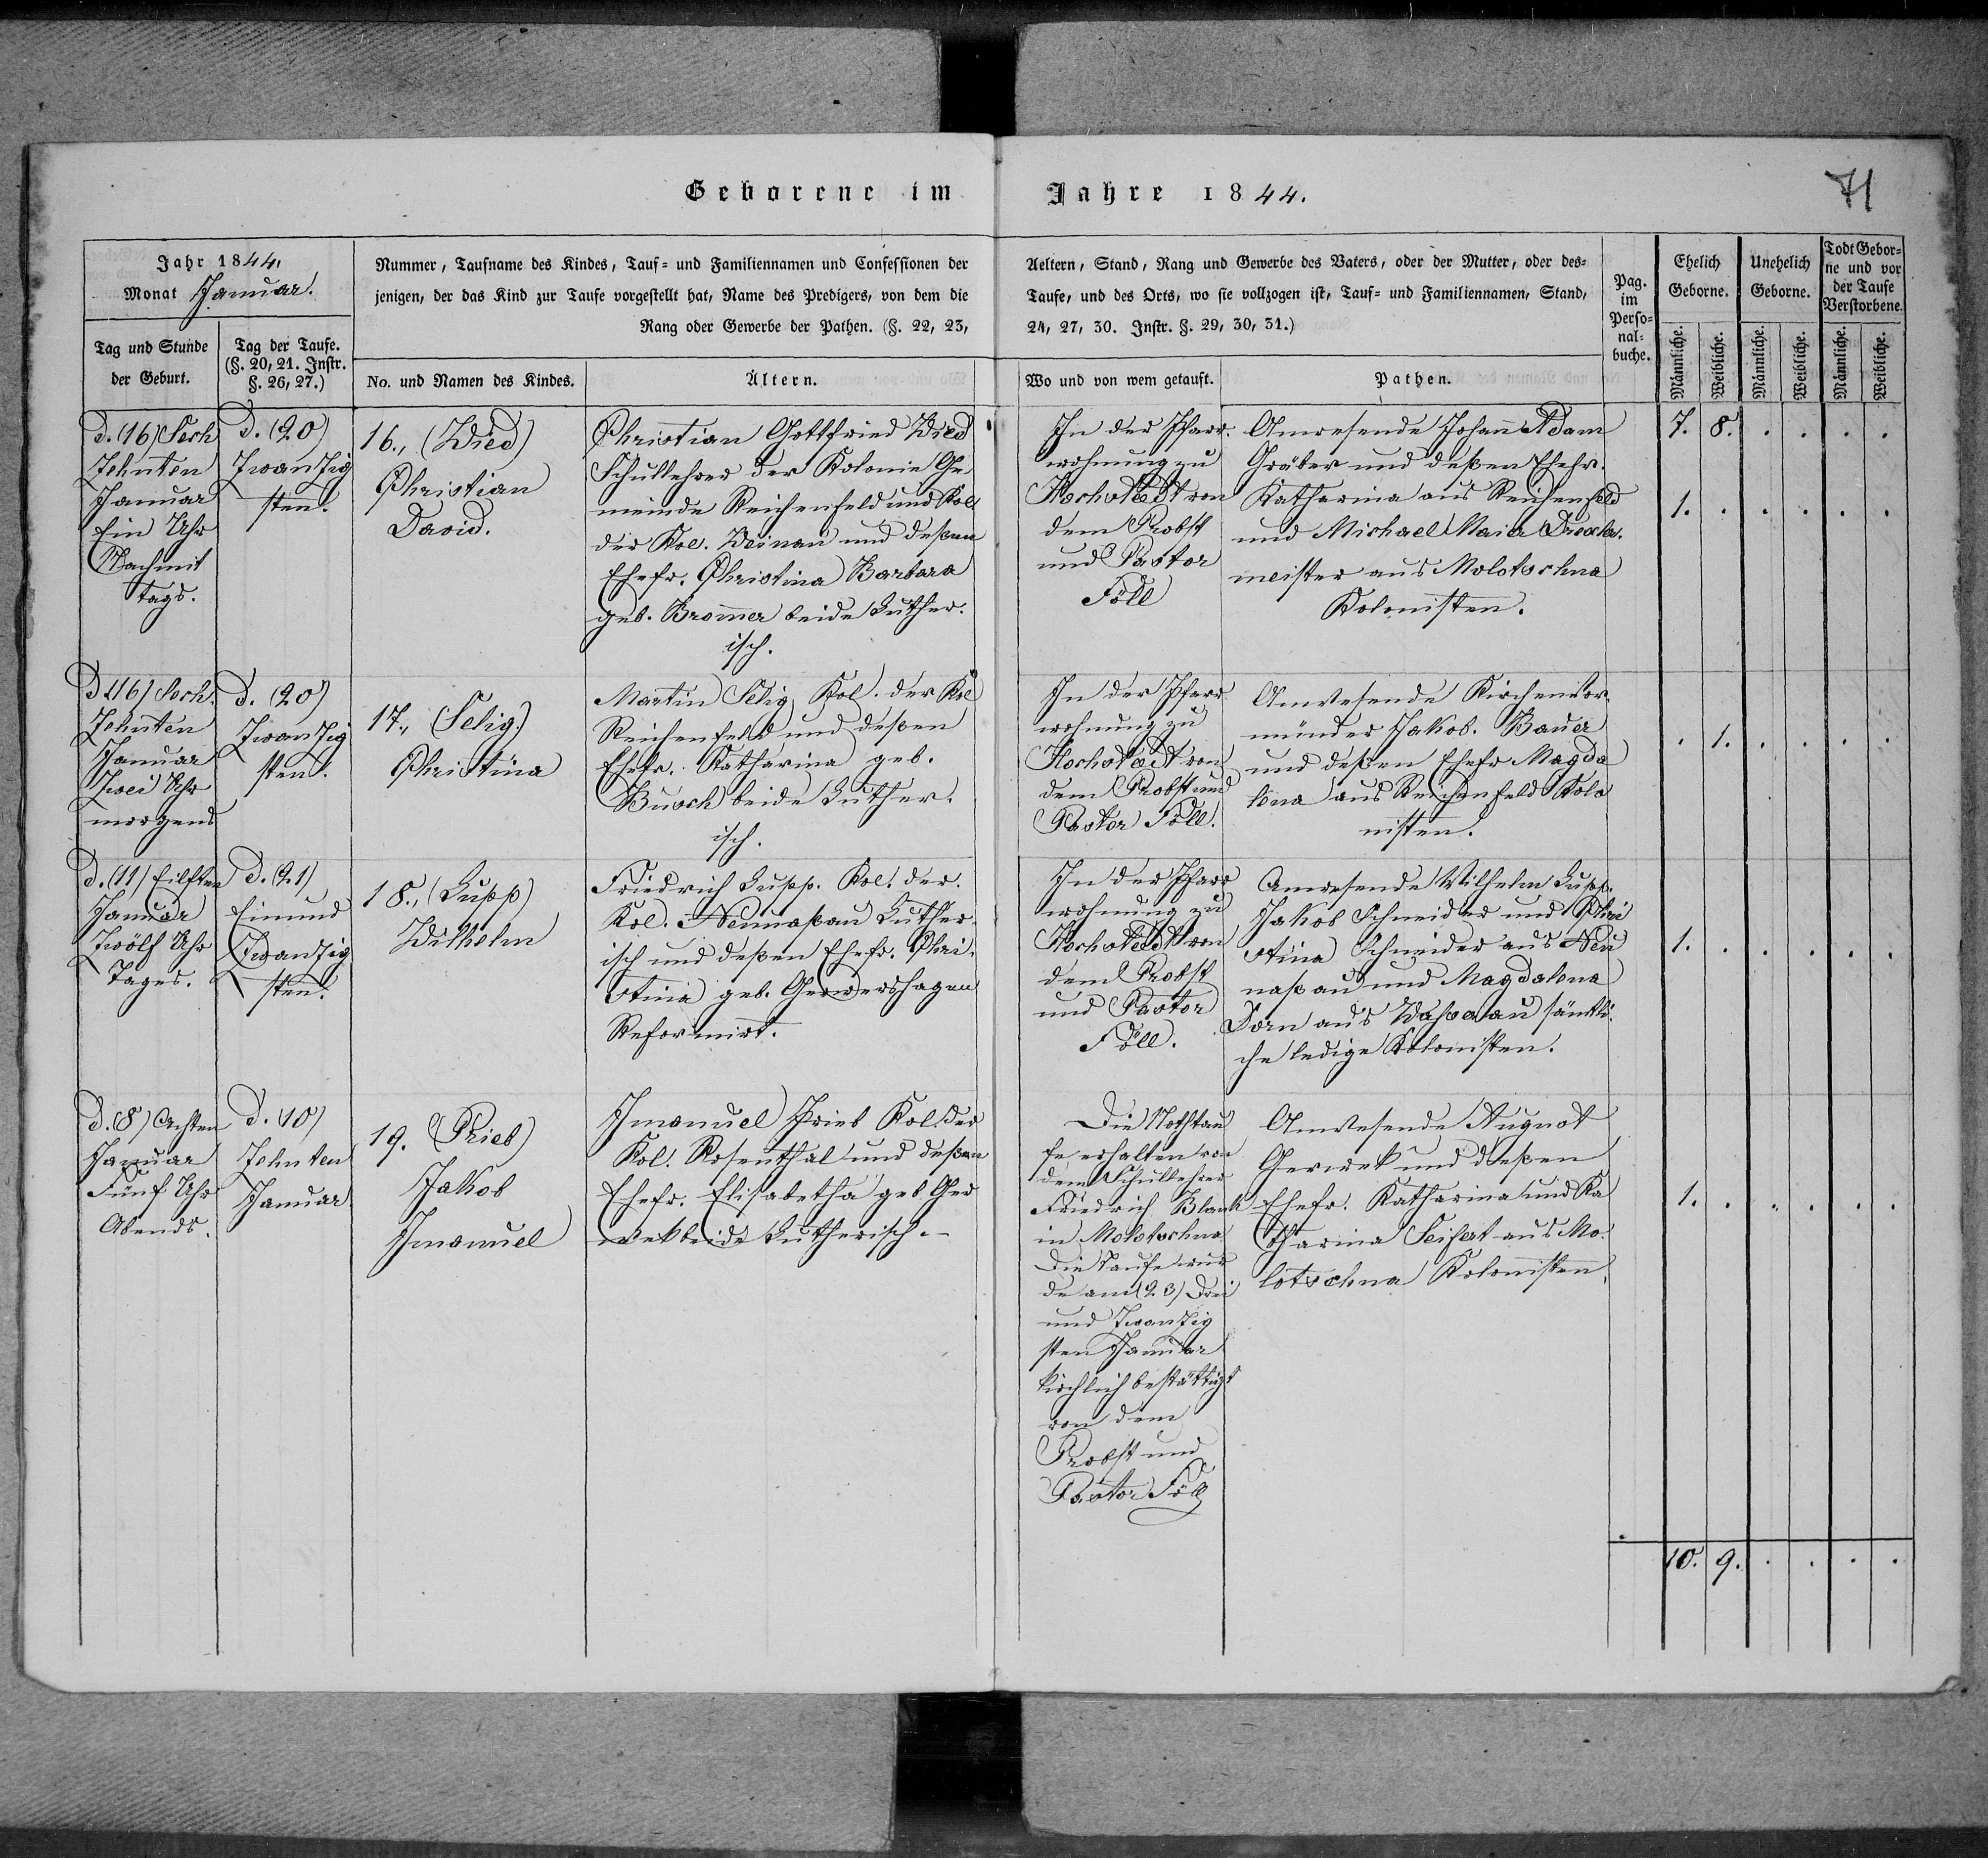 Geborene im Jahre 1844.
71
Jahr 1844.
Monat Januar.
Nummer, Taufname des Kindes, Tauf- und Familiennamen und Confessionen der
jenigen, der das Kind zur Taufe vorgestellt hat, Name des Predigers, von dem die
Rang oder Gewerbe der Pathen. (§. 22, 23,
Aeltern, Stand, Rang und Gewerbe des Vaters, oder der Mutter, oder des-
Taufe, und des Orts, wo sie vollzogen ist, Tauf- und Familiennamen, Stand,
24, 27, 30. Instr. §. 29, 30, 31.)
Pag.
im
Perso-
nal-
buche.
Ehelich
Geborne.
Unehelich
Geborne.
Todt Gebor-
ne und vor
der Taufe
Verstorbene.
Tag und Stunde
der Geburt.
Tag der Taufe.
(§. 20, 21. Instr.
§. 26, 27.)
No. und Namen des Kindes.
Ältern.
Wo und von wem getauft.
Pathen.
Männliche.
Weibliche.
Männliche.
Weibliche.
Männliche.
Weibliche.
D. (16) Sech
Zehnten
Januar
Ein Uhr
Nachmit
tags.
D. (20)
Zwanzig
sten.
16., (Wied)
Christian
David.
Christian Gottfried Wied
Schullehrer der Kolonie Ge
meinde Reichenfeld und Kol.
der Kol. Weinau und deßen
Ehefr. Christina Barbara
geb. Bromer beide Luther.
isch.
In der Pfarr.
wohnung zu
Hochstedt von
dem Probst
und Pastor
Föll
Anwesende Johann Adam
Gräber und deßen Ehefr.
Katharina aus Reichenfeld
und Michael Maier Drexler.
meister aus Molotschna
Kolonisten.
7. 8. . . . .
1. . . . . .
D (16) Sech.
Zehnten
Januar
Zwei Uhr
morgens
D. (20)
Zwanzig
sten.
17., (Selig.)
Christina
Martin Selig Kol. der Kol
Reichenfeld und deßen
Ehefr. Katharina geb.
Busch beide Luther.
isch.
In der Pfarr
wohnung zu
Hochstedt von
dem Probst und
Pastor Föll.
Anwesende Kirchenvor.
münder Jakob. Bauer
und deßen Ehefr Magda
lena aus Reichenfeld Kolo
nisten.
. 1. . . . .
D. (11) Eilften
Januar
Zwölf Uhr
Tages.
D. (21)
Einund
Zwanzig
sten.
18., (Lupp)
Wilhelm
Friedrich Lupp. Kol. der.
Kol. Neunaßau Luther.
isch und deßen Ehefr. Chri.
stina geb. Gewershagen
Reformirt.
In der Pfarr
wohnung zu
Hochstedt von
dem Probst
und Pastor
Föll.
Anwesende Wilhelm Lupp.
Jakob Schneider und Chri
stina Schneider aus Neu
naßau und Magdalena
Dorn aus Waßerau sämtli.
che ledige Kolonisten.
1. . . . . .
D. (8) Achten
Januar
Fünf Uhr
Abends.
D. (10)
Zehnten
Januar
19. (Prieb)
Jakob
Immanuel
Immanuel Prieb Kol der
Kol. Rosenthal und deßen
Ehefr. Elisabetha geb Ger
wek beide Lutherisch.
Die Nothtau
fe erhalten von
dem Schullehrer
Friedrich Blank
in Molotschna
Die Taufe wur
de am (23) Drei
und Zwanzig
sten Januar
kirchlich bestättigt
von dem
Probst und
Pastor Föll
Anwesende August
Gerwek und deßen
Ehefr. Katharina und Ka
tharina Seifert aus Mo.
lotschna Kolonisten.
1. . . . . .
10. 9. . . . .